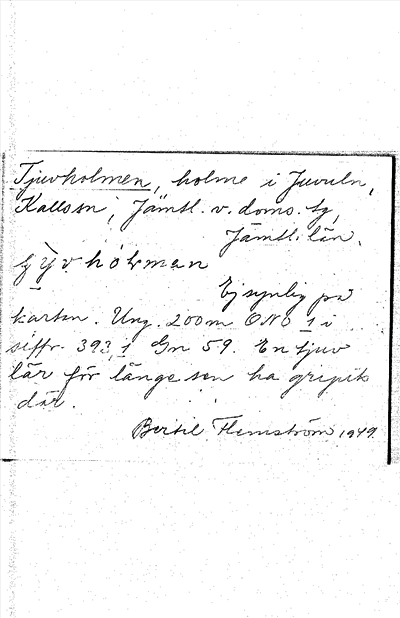 Tjuvholmen, holme i Juvuln,
Kallssn, Jämtl. v. doms. tg,
Jämtl. län.
Ej synlig på
kartan. Ung. 200 m ONO 1 i
siffr. 393,1 Gn 59. En tjuv
lär för länge sen ha gripits
där.
Bertil Flemström 1949.